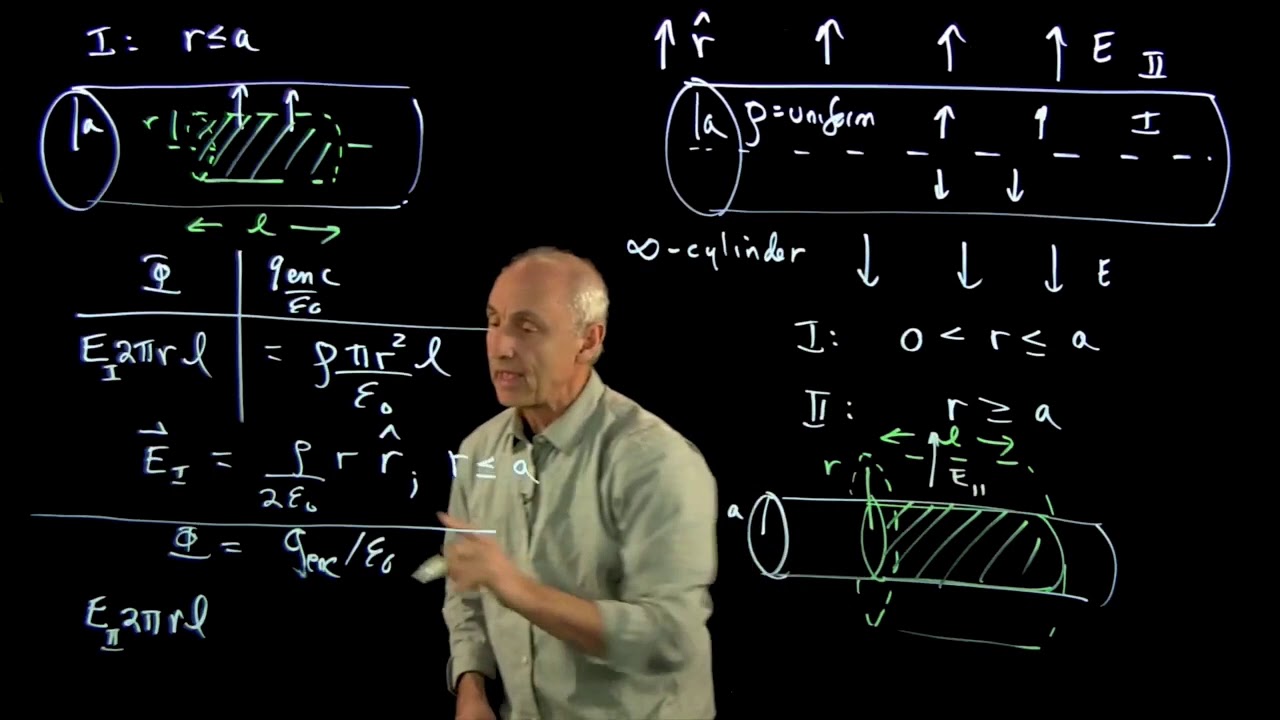 I: r ≤ a
a
r
l
Φ q enc / ε₀
E_I 2πrl = ρ πr² l / ε₀
E⃗_I = ρ / 2ε₀ r r̂ ; r ≤ a
Φ = q_enc / ε₀
E_II 2πrl
r̂ E II
a ρ = uniform I
∞-cylinder E
I: 0 < r ≤ a
II: r ≥ a
l
r E_II
a